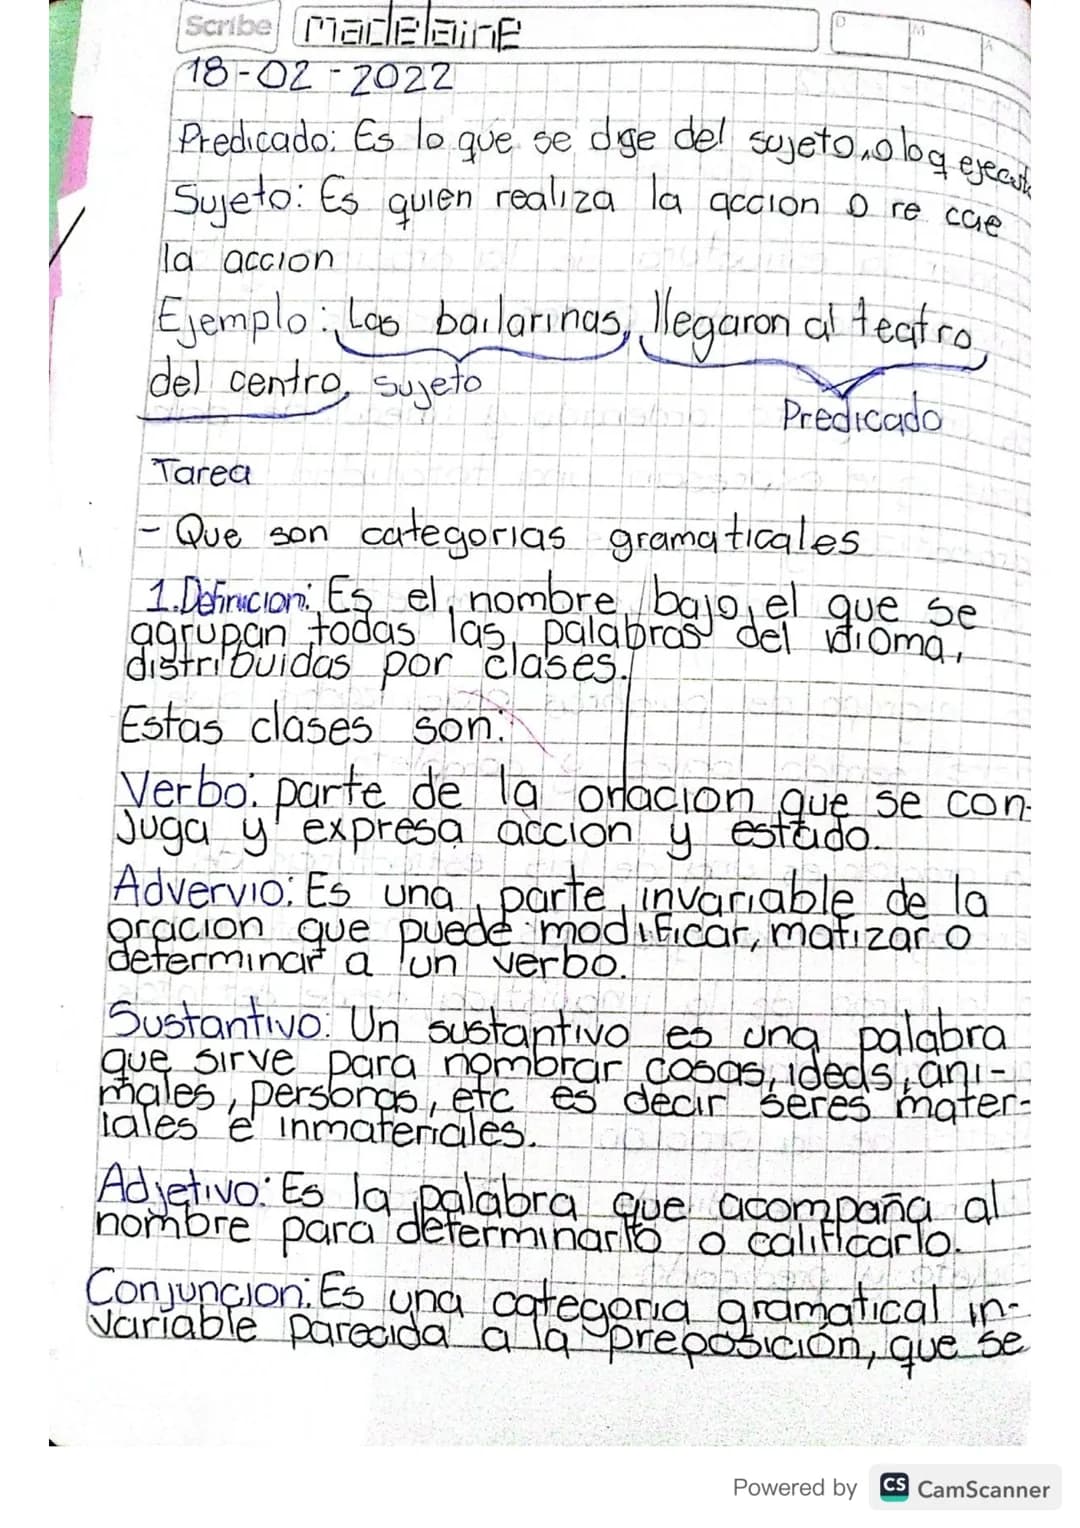 Scribe madelaine D M A
18-02-2022
Predicado: Es lo que se dige del sujeto, o lo q ejecuta
Sujeto: Es quien realiza la accion o re cae
la accion
Ejemplo: Las bailarinas, llegaron al teatro
del centro. Sujeto
Predicado
Tarea
- Que son categorias gramaticales
1. Definicion: Es el nombre bajo el que se
agrupan todas las palabras del idioma,
distribuidas por clases.
Estas clases son:
Verbo: parte de la oracion que se con-
Juga y expresa accion y estado.
Advervio: Es una parte invariable de la
oracion que puede modificar, matizar o
determinar a un verbo.
Sustantivo: Un sustantivo es una palabra
que sirve para nombrar cosas, ideas, ani-
males, personas, etc es decir seres mater-
iales e inmateriales.
Adjetivo: Es la palabra que acompaña al
nombre para determinarlo o calificarlo.
Conjuncion: Es una categoria gramatical in-
variable parecida a la preposición, que se
Powered by CS CamScanner